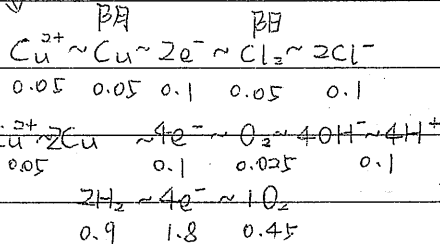 阴 阳
Cu²⁺ ~ Cu ~ 2e⁻ ~ Cl₂ ~ 2Cl⁻
0.05 0.05 0.1 0.05 0.1
Cu²⁺ ~ 2Cu ~ 4e⁻ ~ O₂ ~ 4OH⁻ ~ 4H⁺
0.05 0.1 0.025 0.1
2H₂ ~ 4e⁻ ~ 1O₂
0.9 1.8 0.45